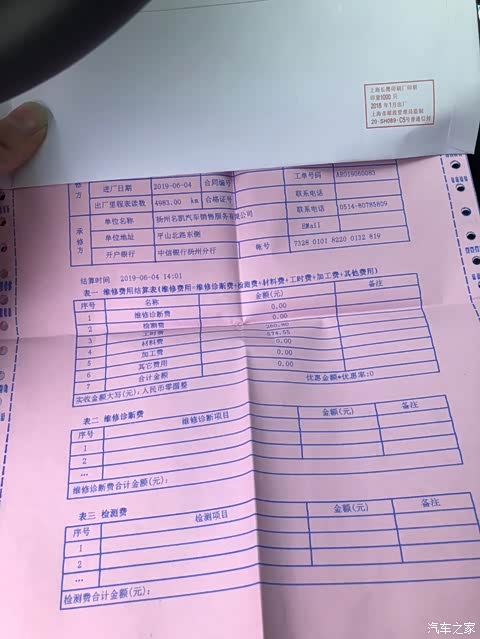 上海长鹰印刷厂印制
印量1000 只
2018 年1月出厂
上海市邮政管理局监制
20-SH089-C5号普通信封
方 进厂日期 2019-06-04 合同编号 工单号码 A8019060083
出厂里程表读数 4983.00 km 合格证号 联系电话
承修方 单位名称 扬州名凯汽车销售服务有限公司 联系电话 0514-80785809
单位地址 平山北路东侧 EMail
开户银行 中信银行扬州分行 帐号 7328 0101 8220 0132 819
结算时间 2019-06-04 14:01
表一 维修费用结算表(维修费用=维修诊断费+检测费+材料费+工时费+加工费+其他费用)
序号 名称 金额(元) 备注
1 维修诊断费 0.00
2 检测费 0.00
工时费
3 材料费 274.55
4 加工费 0.00
5 其它费用 0.00
6 合计金额 0.00
7 优惠金额*优惠率:0
实收金额大写(元):人民币零圆整
表二 维修诊断费
序号 维修诊断项目 金额(元) 备注
1
2
...
维修诊断费合计金额(元):
表三 检测费
序号 检测项目 金额(元) 备注
1
2
...
检测费合计金额(元):
汽车之家